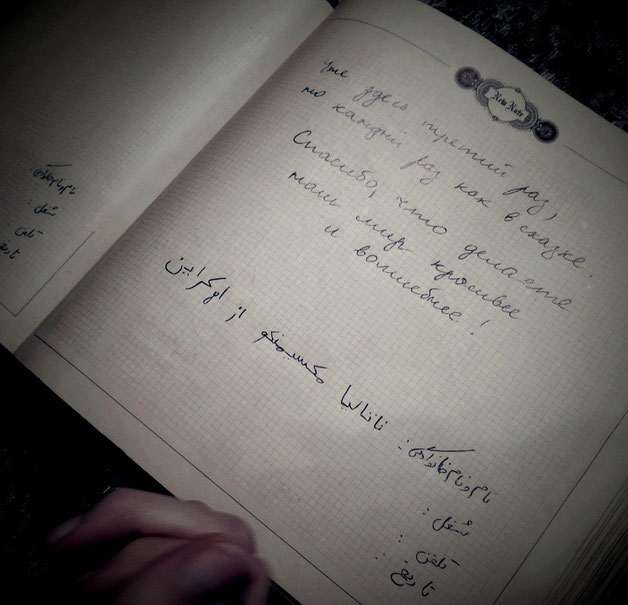 Note Note
Уже здесь третий раз,
но каждый раз как в сказке.
Спасибо, что делаете
наш мир красивее
и волшебнее!
ناتالیا مکسیمنکو از اوکراین
نام و نام خانوادگی:
شغل:
تلفن:
تاریخ:
نام و نام خانوادگی
شغل:
تلفن:
تاریخ